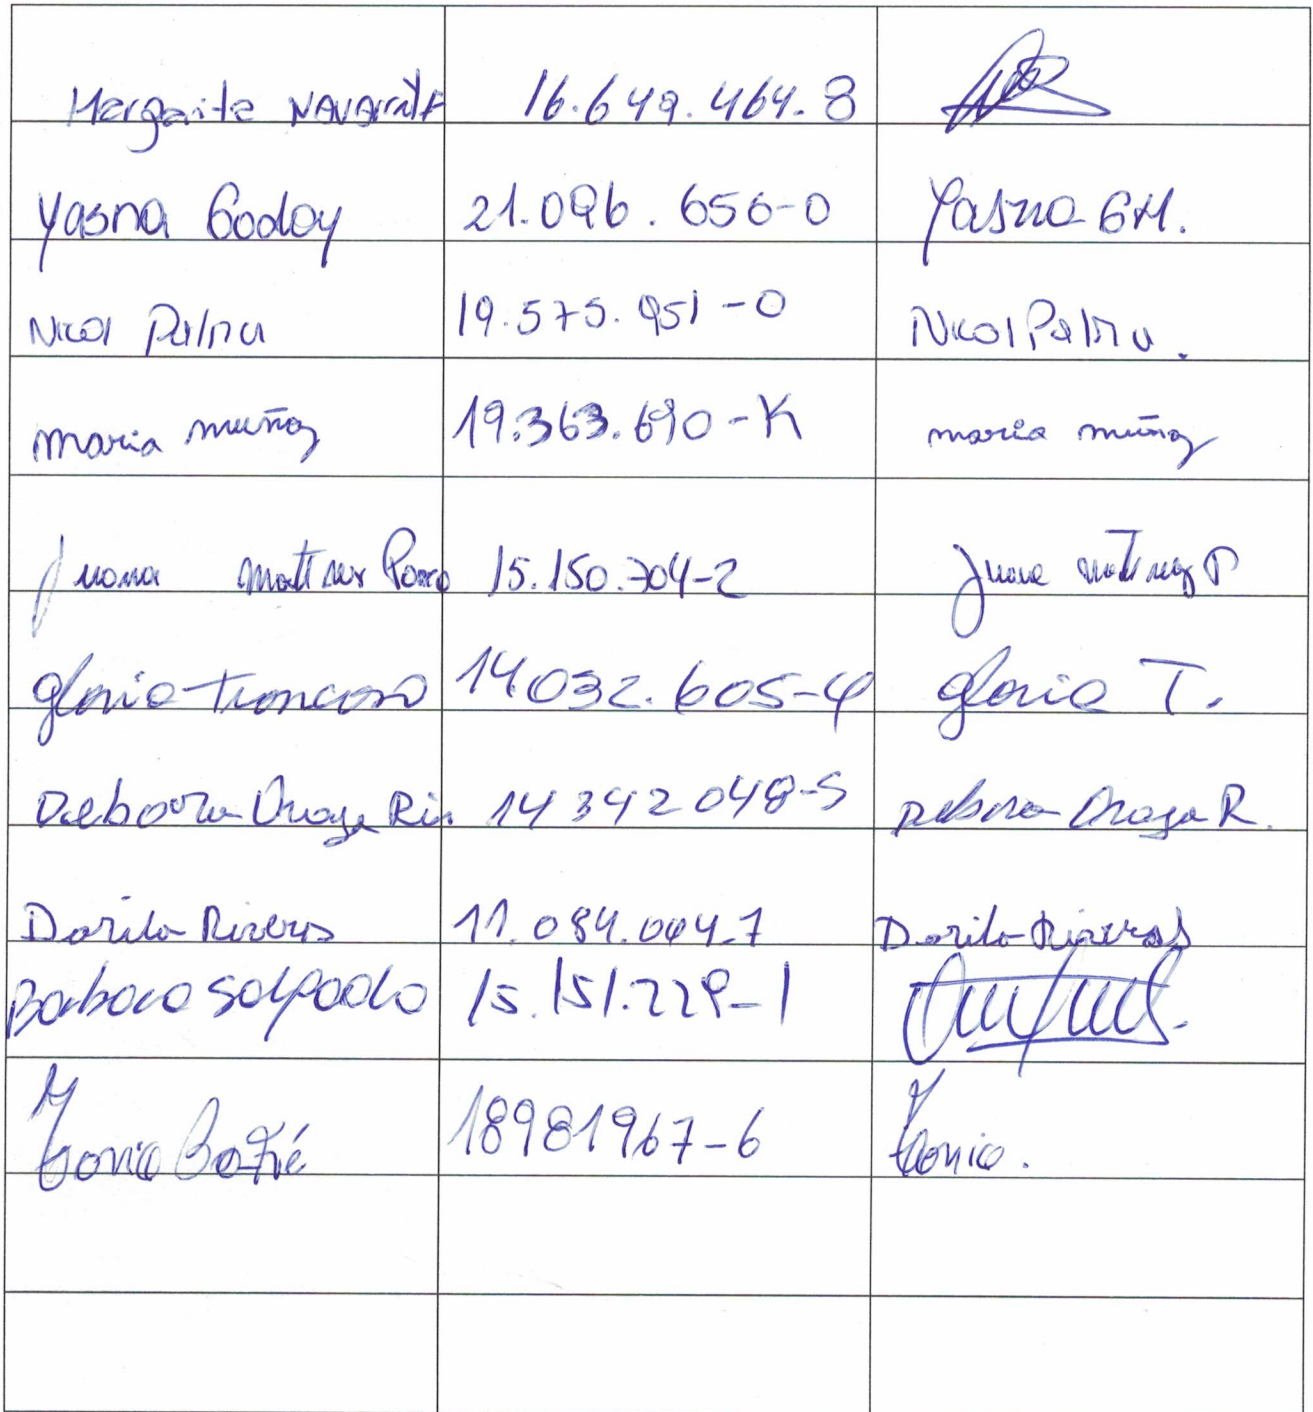 Margarita Navarrete 16.649.464-8
Yasna Godoy 21.096.656-0 Yasna GM.
Nicol Palma 19.575.951-0 Nicol Palma.
maria muñoz 19.363.690-K maria muñoz
Juana Martinez Parra 15.150.704-2 Juana Martinez P
gloria troncoso 14.032.605-4 gloria T.
Debora Oraga 14342048-5 Debora Oraga R.
Dorila Riveros 11.084.004-7 Dorila Riveros
Barbara Salgado 15.151.229-1
18981967-6